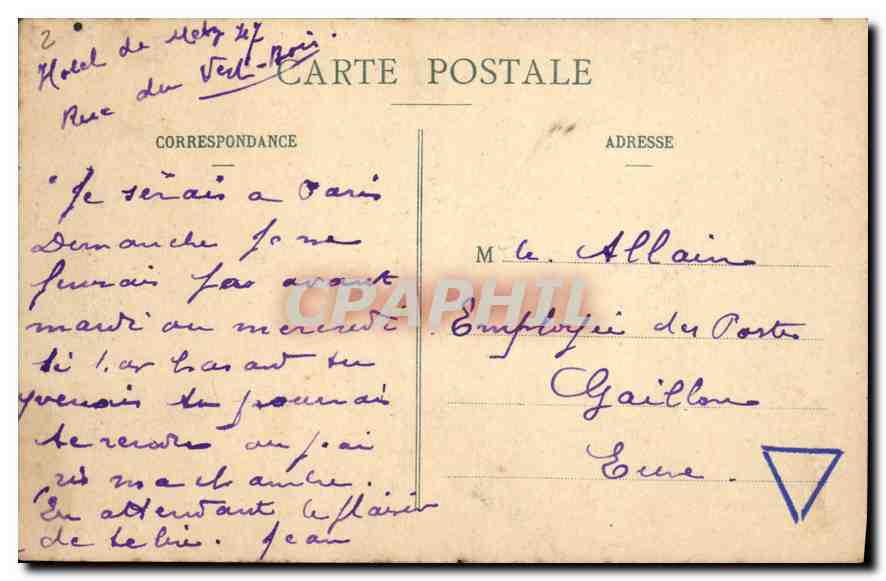 2
Hotel de Metz 47
Rue du Vert-Bois.
CARTE POSTALE
CORRESPONDANCE
ADRESSE
Je serais a Paris
Demanche Je ne
pas avant
mardi ou mercredi
si par hasard tu
venais tu pourrais
te rendre ou j'ai
ma chambre.
En attendant le plaisir
de te lire. Jean
M lle. Allain
Employée des Postes
Gaillon
Eure.
CPAPHIL